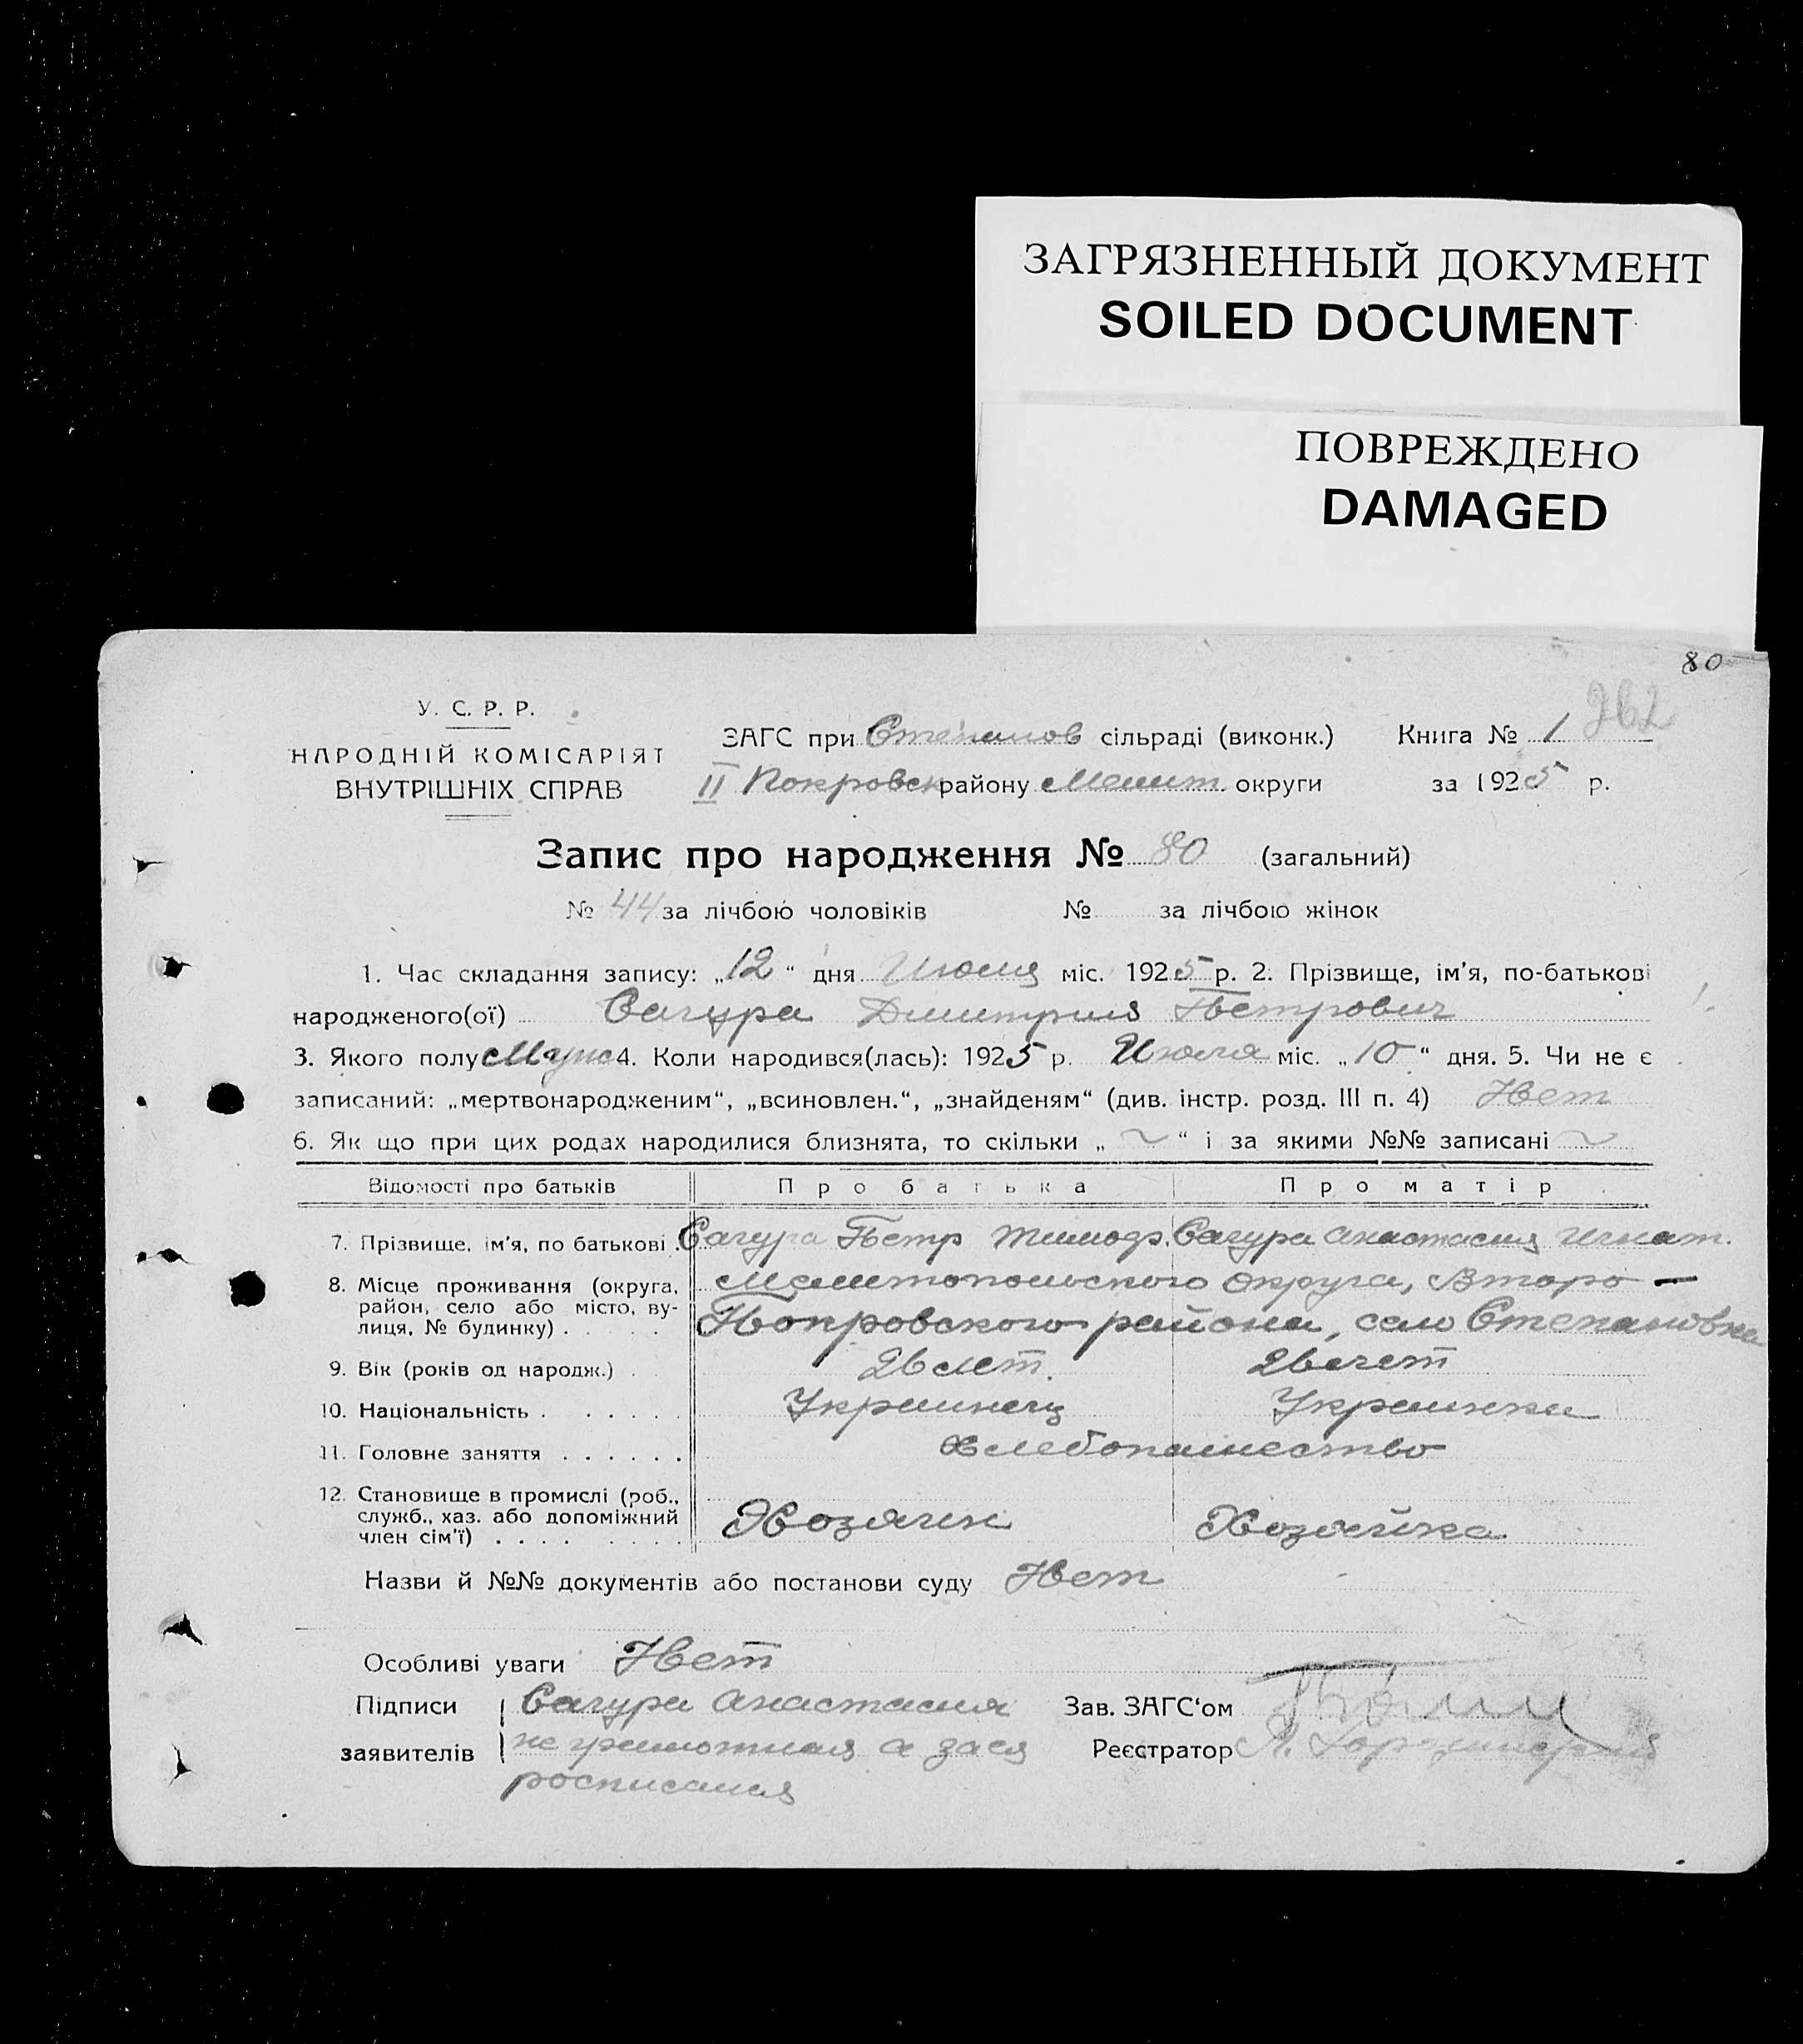 ЗАГРЯЗНЕННЫЙ ДОКУМЕНТ
SOILED DOCUMENT
ПОВРЕЖДЕНО
DAMAGED
80
262
У. С. Р. Р.
НАРОДНІЙ КОМІСАРІЯТ
ВНУТРІШНІХ СПРАВ
ЗАГС при Степанов сільраді (виконк.) Книга № 1
II Покровск району Мелит. округи за 1925 р.
Запис про народження № 80 (загальний)
№ 44 за лічбою чоловіків № за лічбою жінок
1. Час складання запису: „12“ дня Июля міс. 1925 р. 2. Прізвище, ім'я, по-батькові
народженого(ої) Сагура Дмитрий Петрович
3. Якого полу Муж 4. Коли народився(лась): 1925 р. Июля міс. „10“ дня. 5. Чи не є
записаний: „мертвонародженим“, „всиновлен.“, „знайденям“ (див. інстр. розд. III п. 4) Нет
6. Як що при цих родах народилися близнята, то скільки „ ~ “ і за якими №№ записані ~
Відомості про батьків Про батька Про матір
7. Прізвище, ім'я, по батькові. Сагура Петр Тимоф. Сагура Анастасия Игнат.
8. Місце проживання (округа, район, село або місто, ву-
лиця, № будинку) . . . . . Мелитопольского округа, Второ —
Покровского района, село Степановка
9. Вік (років од народж.) . 26 лет. 26 лет
10. Національність . . . . . . Украинец Украинка
11. Головне заняття . . . . . . Хлебопашество
12. Становище в промислі (роб.,
служб., хаз. або допоміжний
член сім'ї) . . . . . . . . Хозяин Хозяйка
Назви й №№ документів або постанови суду Нет
Особливі уваги Нет
Підписи Сагура Анастасия Зав. ЗАГС‘ом
заявителів неграмотная а зася Реєстратор
росписался